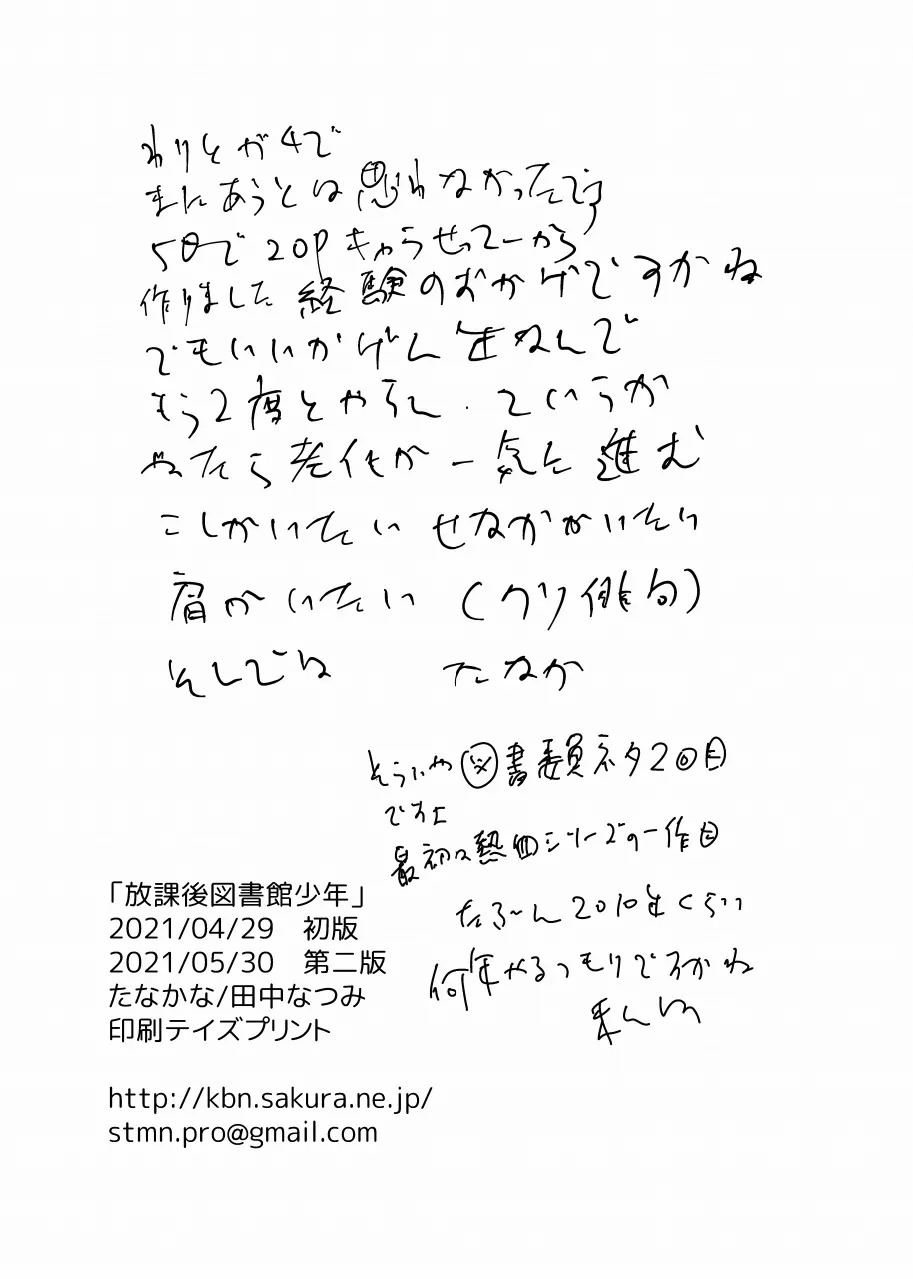 わりとガチで
まにあうとは思わなかったです
5日で20Pキャラせってーから
作りました 経験のおかげですかね
でもいいかげん年なんで
もう2度とやらん.ていうか
やったら老化が一気に進む
こしがいたい せなかがいたい
肩がいたい (クソ俳句)
そしでは たなか
そういや図書委員ネタ2回目
ですよ
最初は熱血シリーズの一作目
たぶーん2010年くらい
何年やるつもりですかね
「放課後図書館少年」
2021/04/29 初版
2021/05/30 第二版
たなかな/田中なつみ
印刷テイズプリント
http://kbn.sakura.ne.jp/
stmn.pro@gmail.com